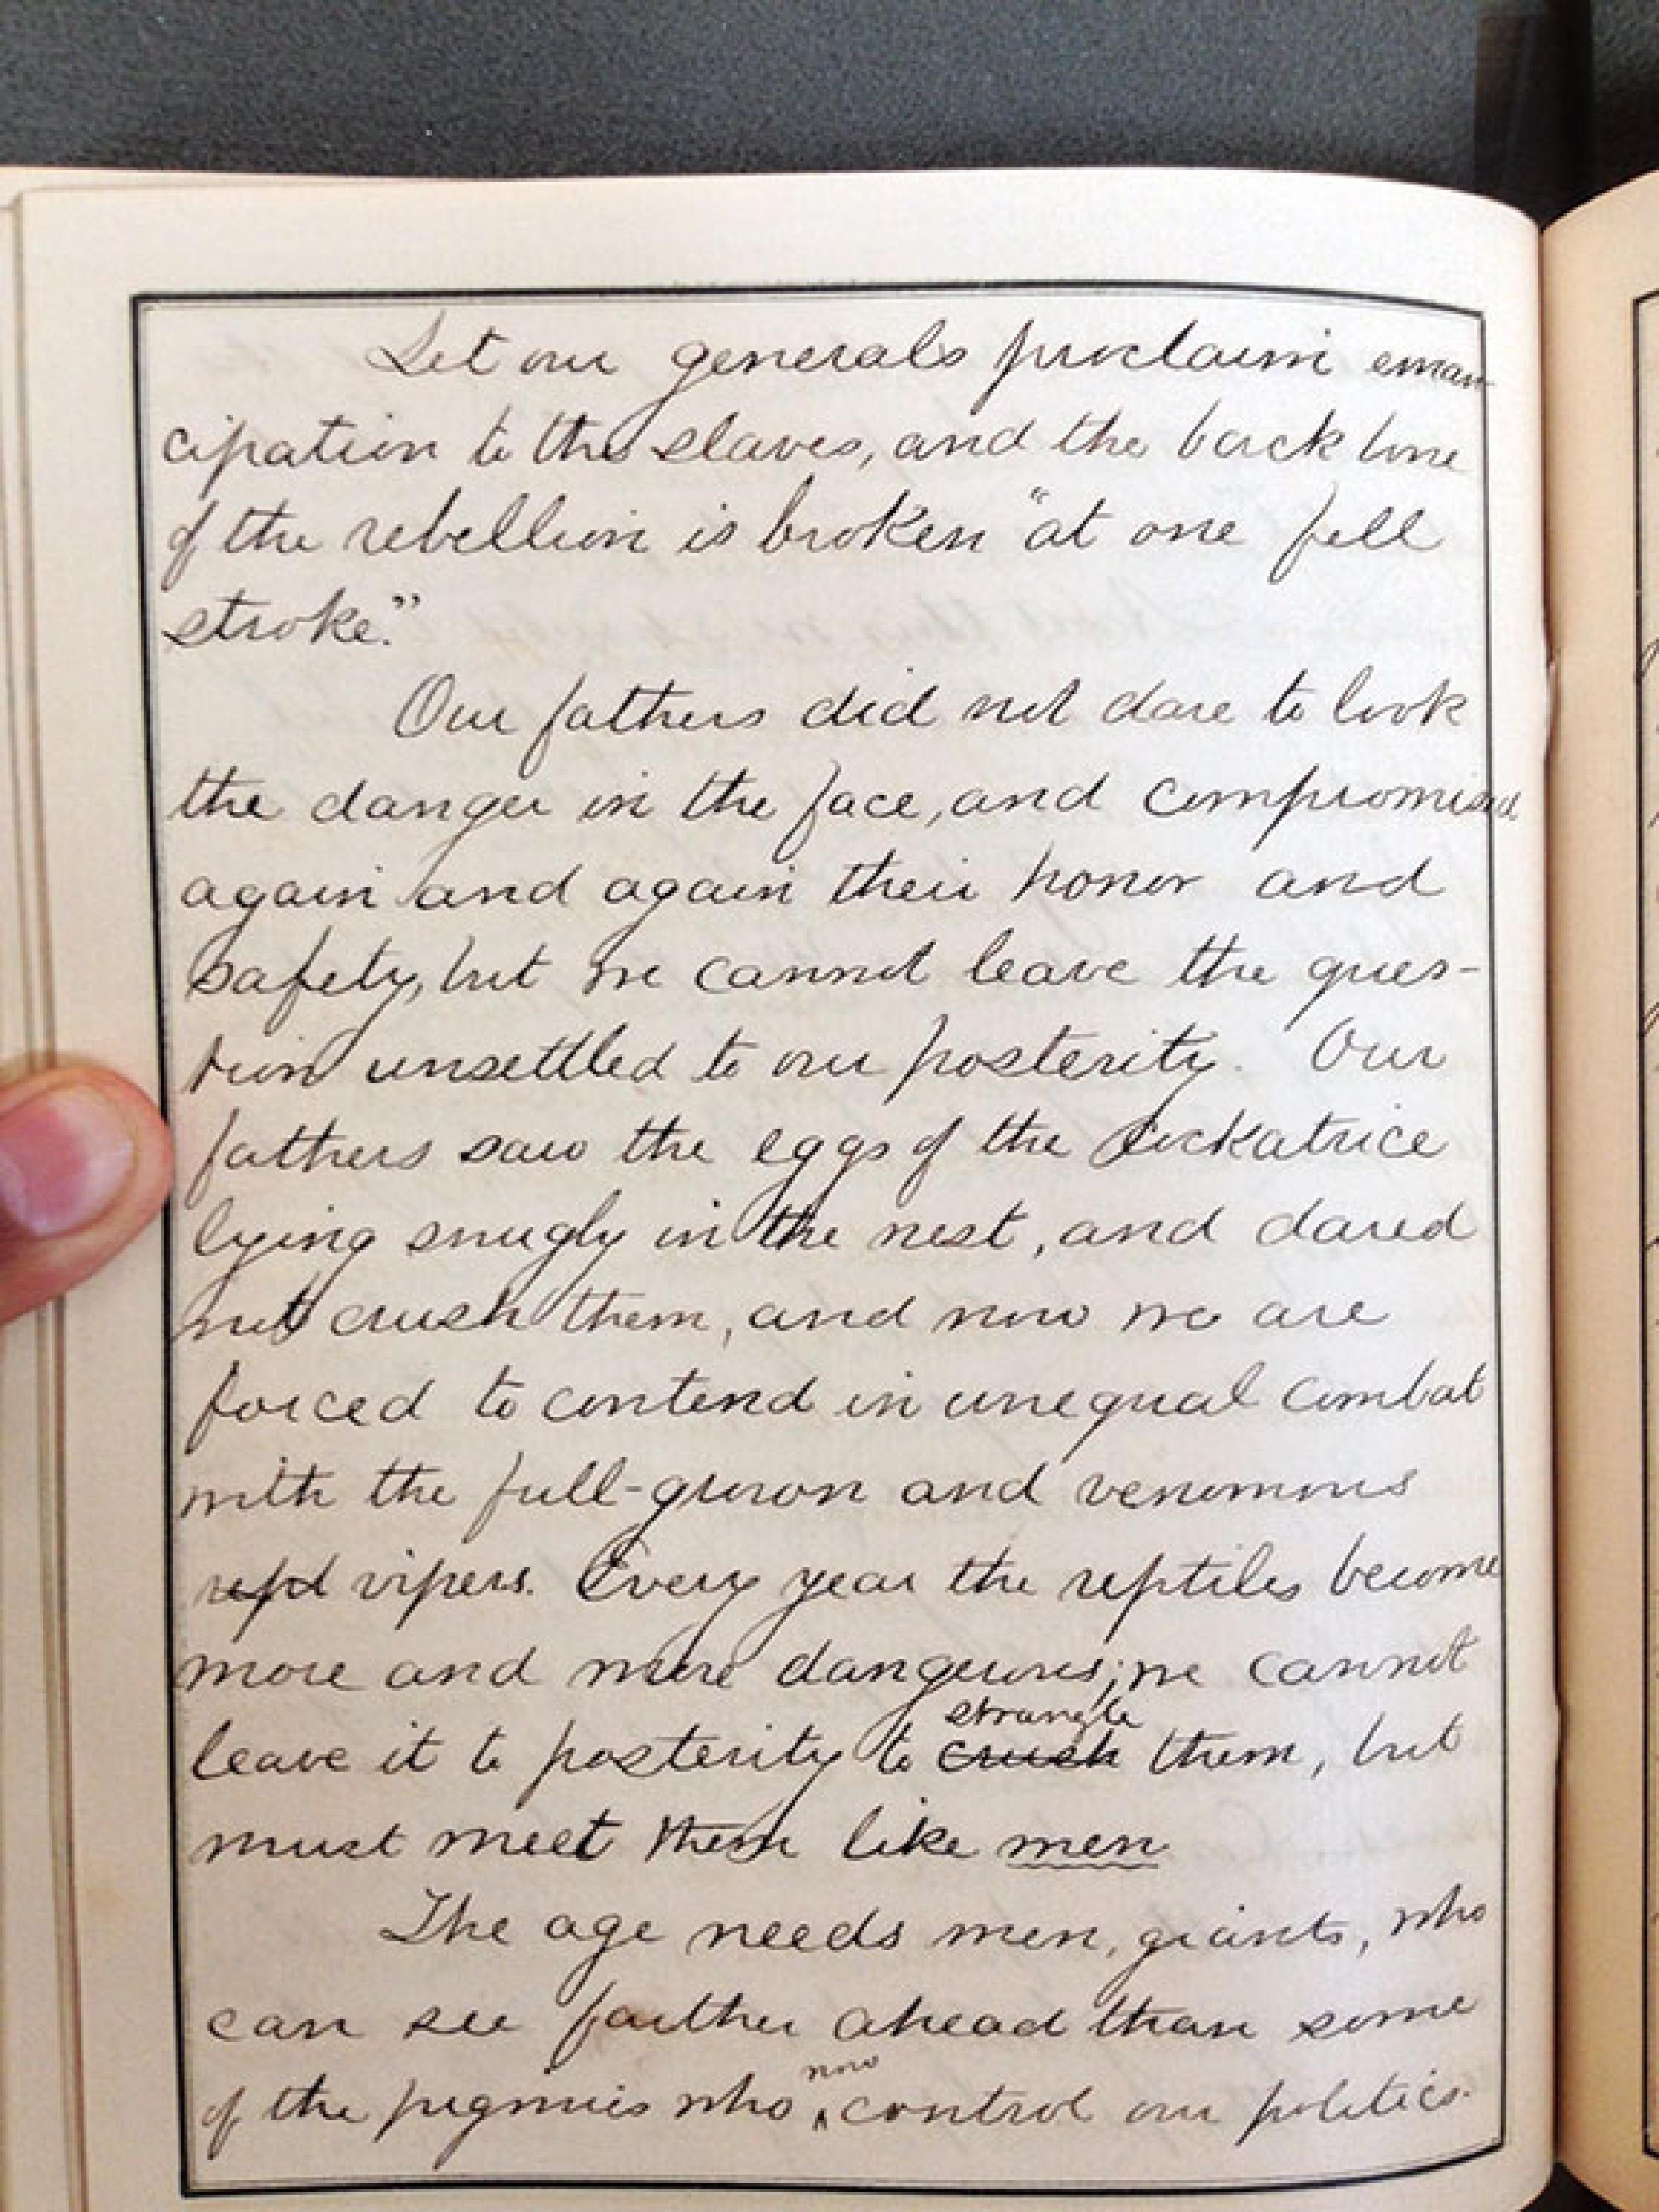 Let our generals proclaim eman-
cipation to the slaves, and the back bone
of the rebellion is broken "at one fell
stroke."
Our fathers did not dare to look
the danger in the face, and compromised
again and again their honor and
safety, but we cannot leave the ques-
tion unsettled to our posterity. Our
fathers saw the eggs of the cockatrice
lying snugly in the nest, and dared
not crush them, and now we are
forced to contend in unequal combat
with the full-grown and venomous
rept vipers. Every year the reptiles become
more and more dangerous; we cannot
strangle
leave it to posterity to crush them, but
must meet them like men
The age needs men, giants, who
can see farther ahead than some
now
of the pigmies who ^ control our politics.